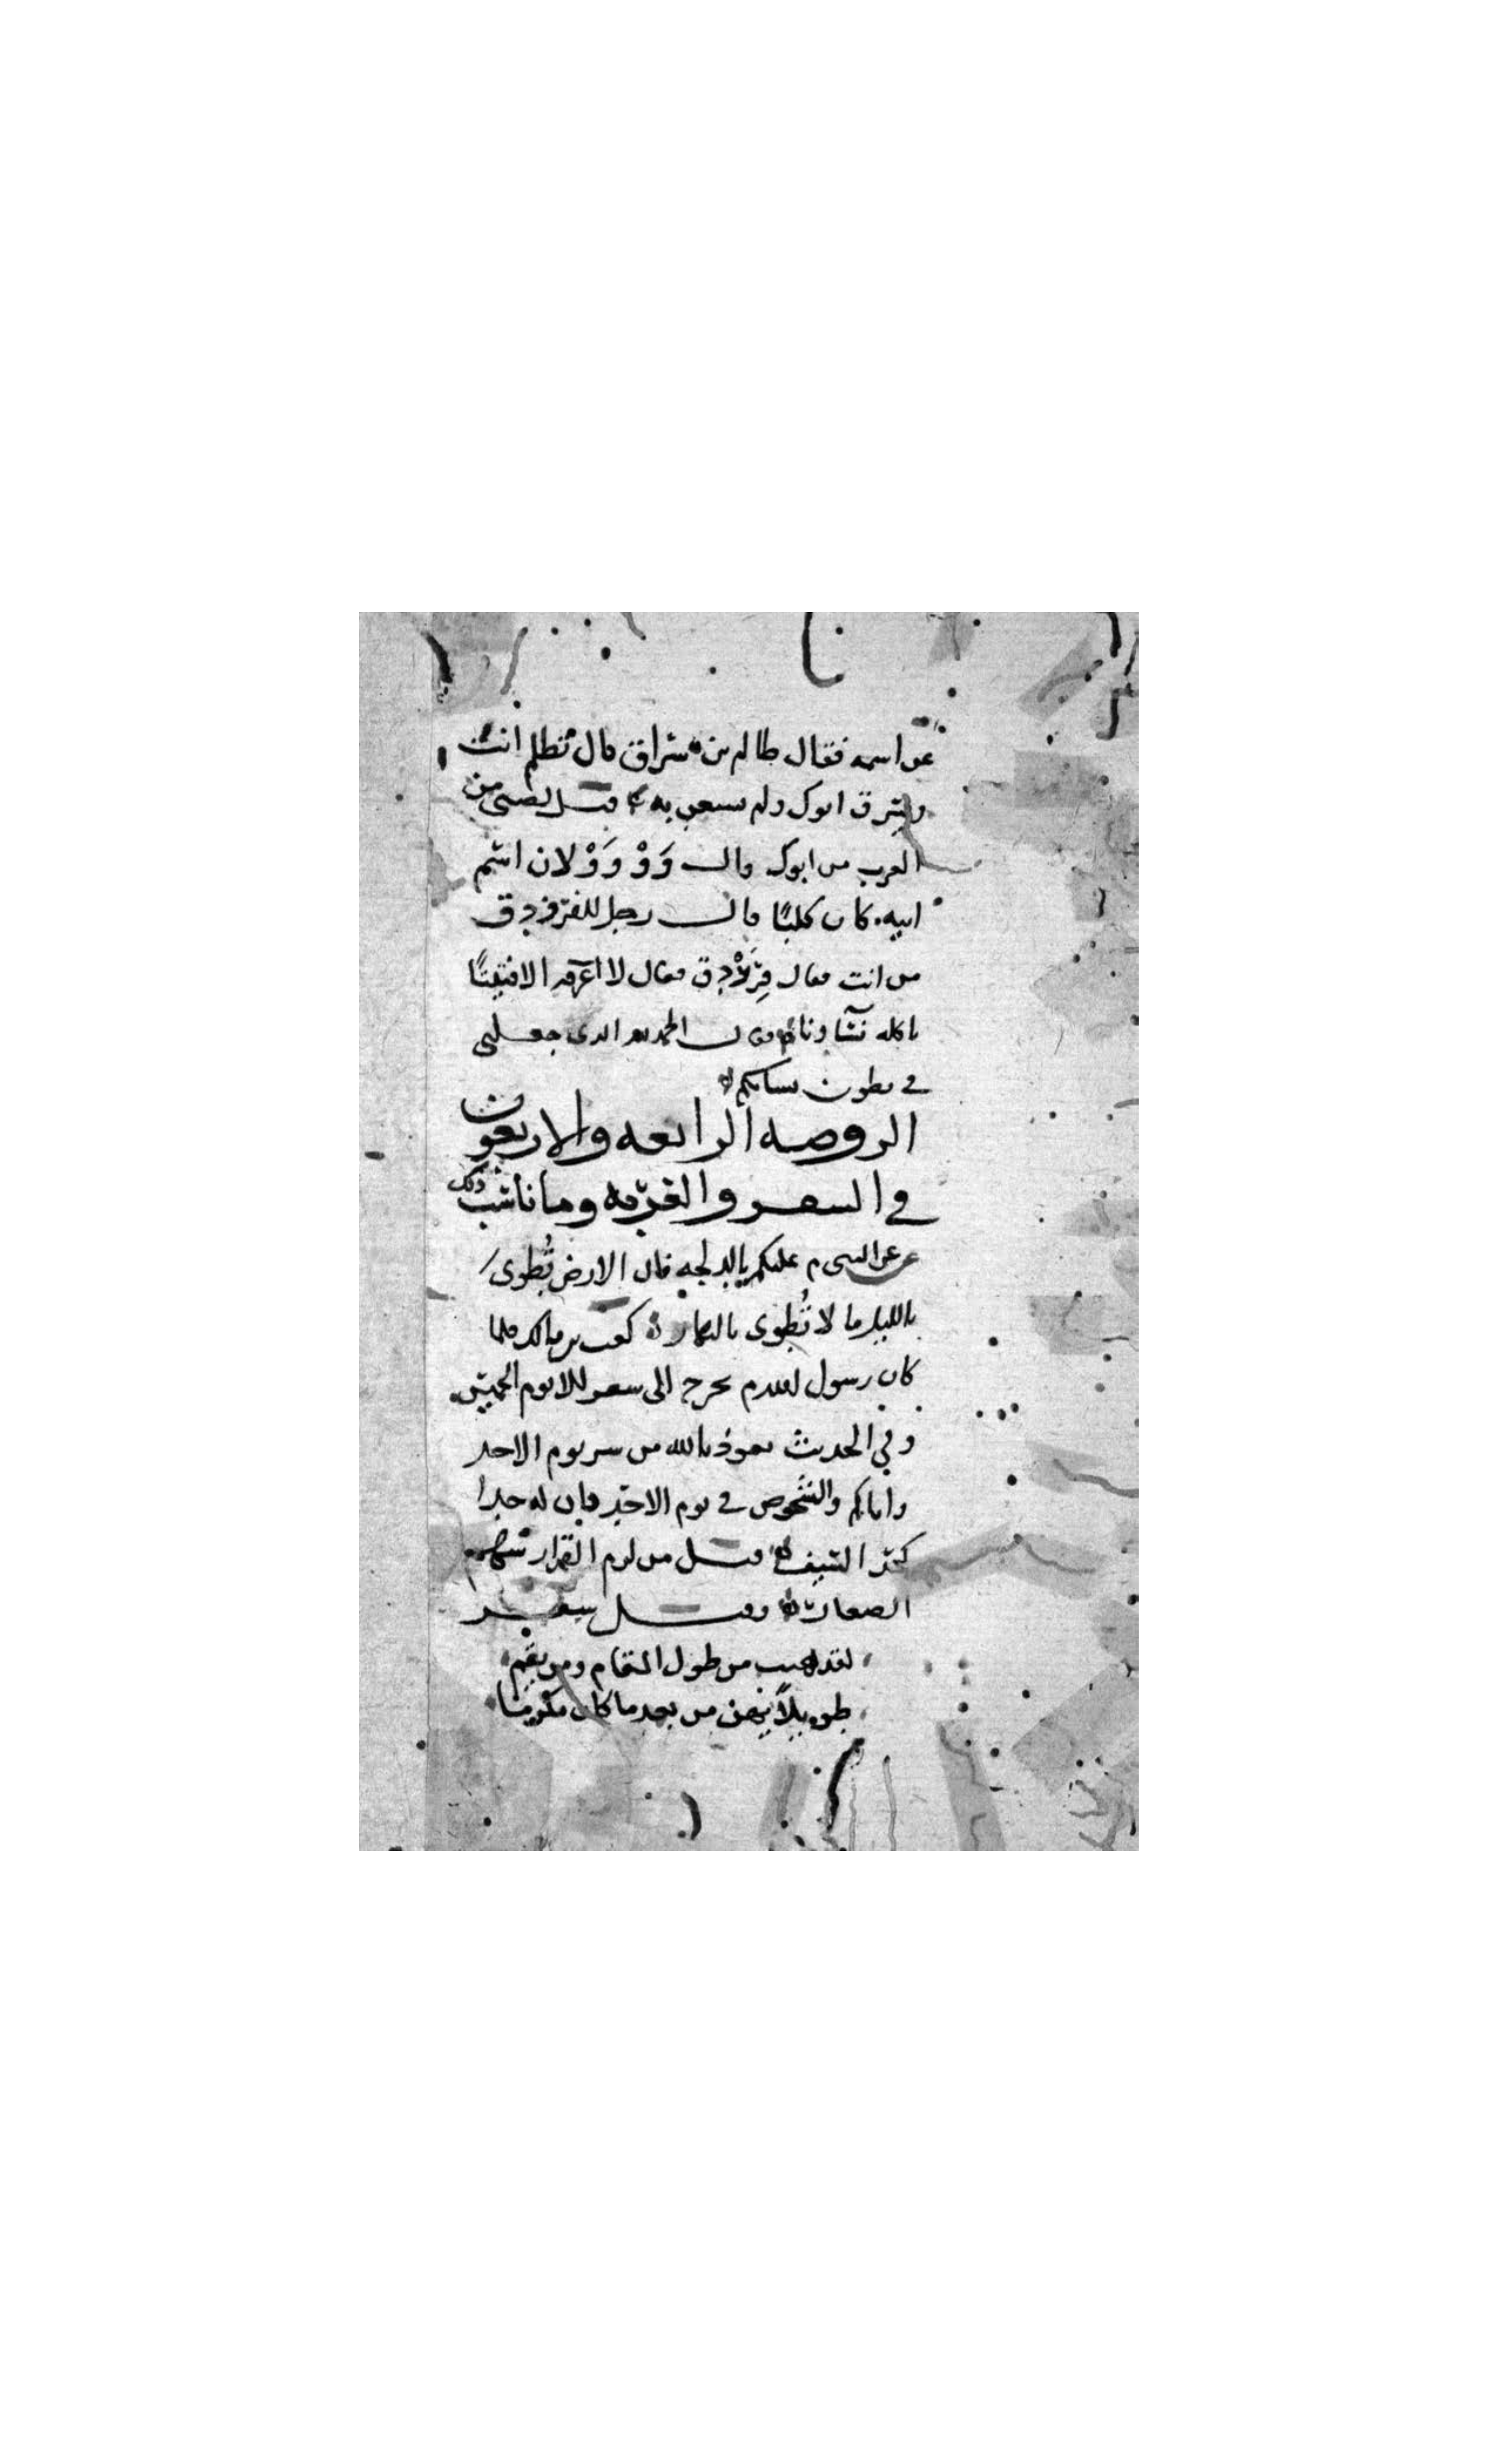 عن اسمه فقال ظالم بن سراق قال تظلم انت
ويسرق ابوك ولم يستعن به قيل لصبي من
العرب من ابوك قال وَوْ وَوْ لان اسم
ابيه كان كلبًا قال رجل للفرزدق
من انت فقال فرزدق فقال لا اعرفه الا فتيتًا
ياكله نسآونا فقال الحمد لله الذي جعلني
في بطون نسايكم
الروضه الرابعه والاربعون
في السفر والغربه وما ناسب ذلك
عن النبي م عليكم بالدلجه فان الارض تُطوى
بالليل ما لا تُطوى بالنهار كعب بن مالك قلما
كان رسول الله م يخرج الى سفر الا يوم الخميس
وفي الحديث نعوذ بالله من سر يوم الاحد
واياكم والشخوص في يوم الاحد فان له حدا
كحد السيف قيل من لزم القرار
الصغار وقيل شعر
لقد من طول المقام ومن يقم
طويلاً يهن من بعد ما كان مكرمًا